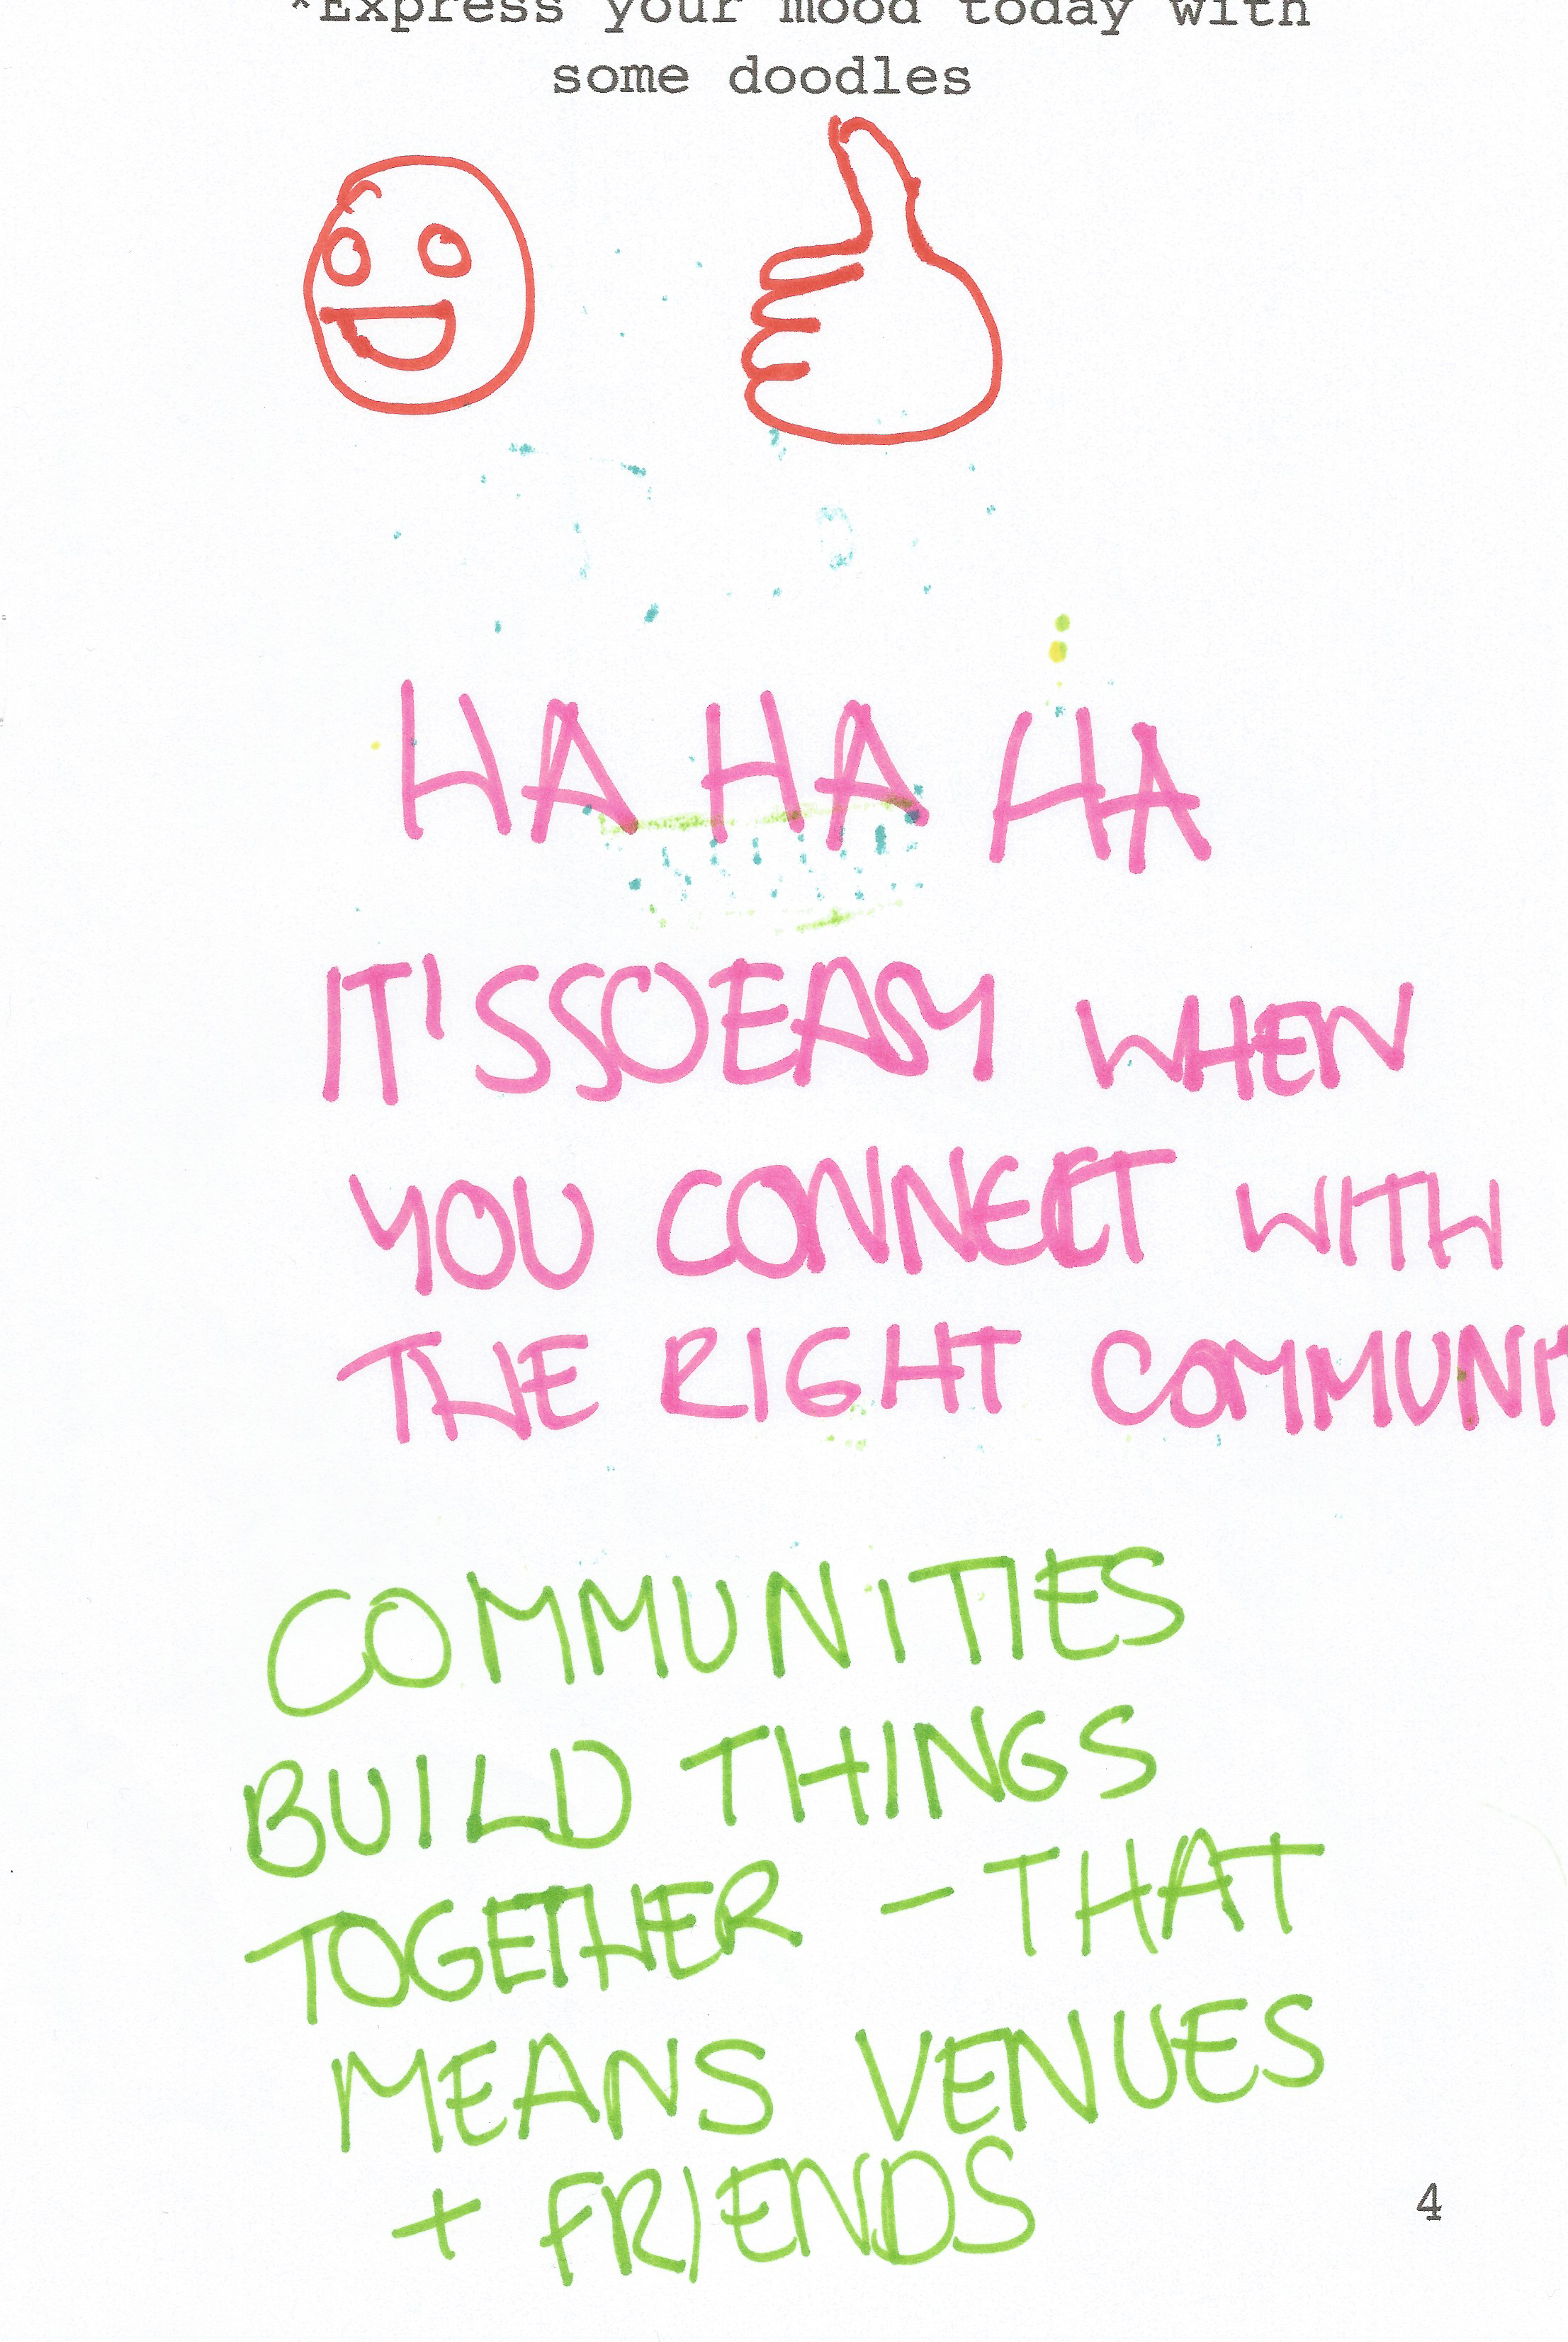 *Express your mood today with
some doodles
HA HA HA
IT'S SO EASY WHEN
YOU CONNECT WITH
THE RIGHT COMMUNI
COMMUNITIES
BUILD THINGS
TOGETHER - THAT
MEANS VENUES
+ FRIENDS
4